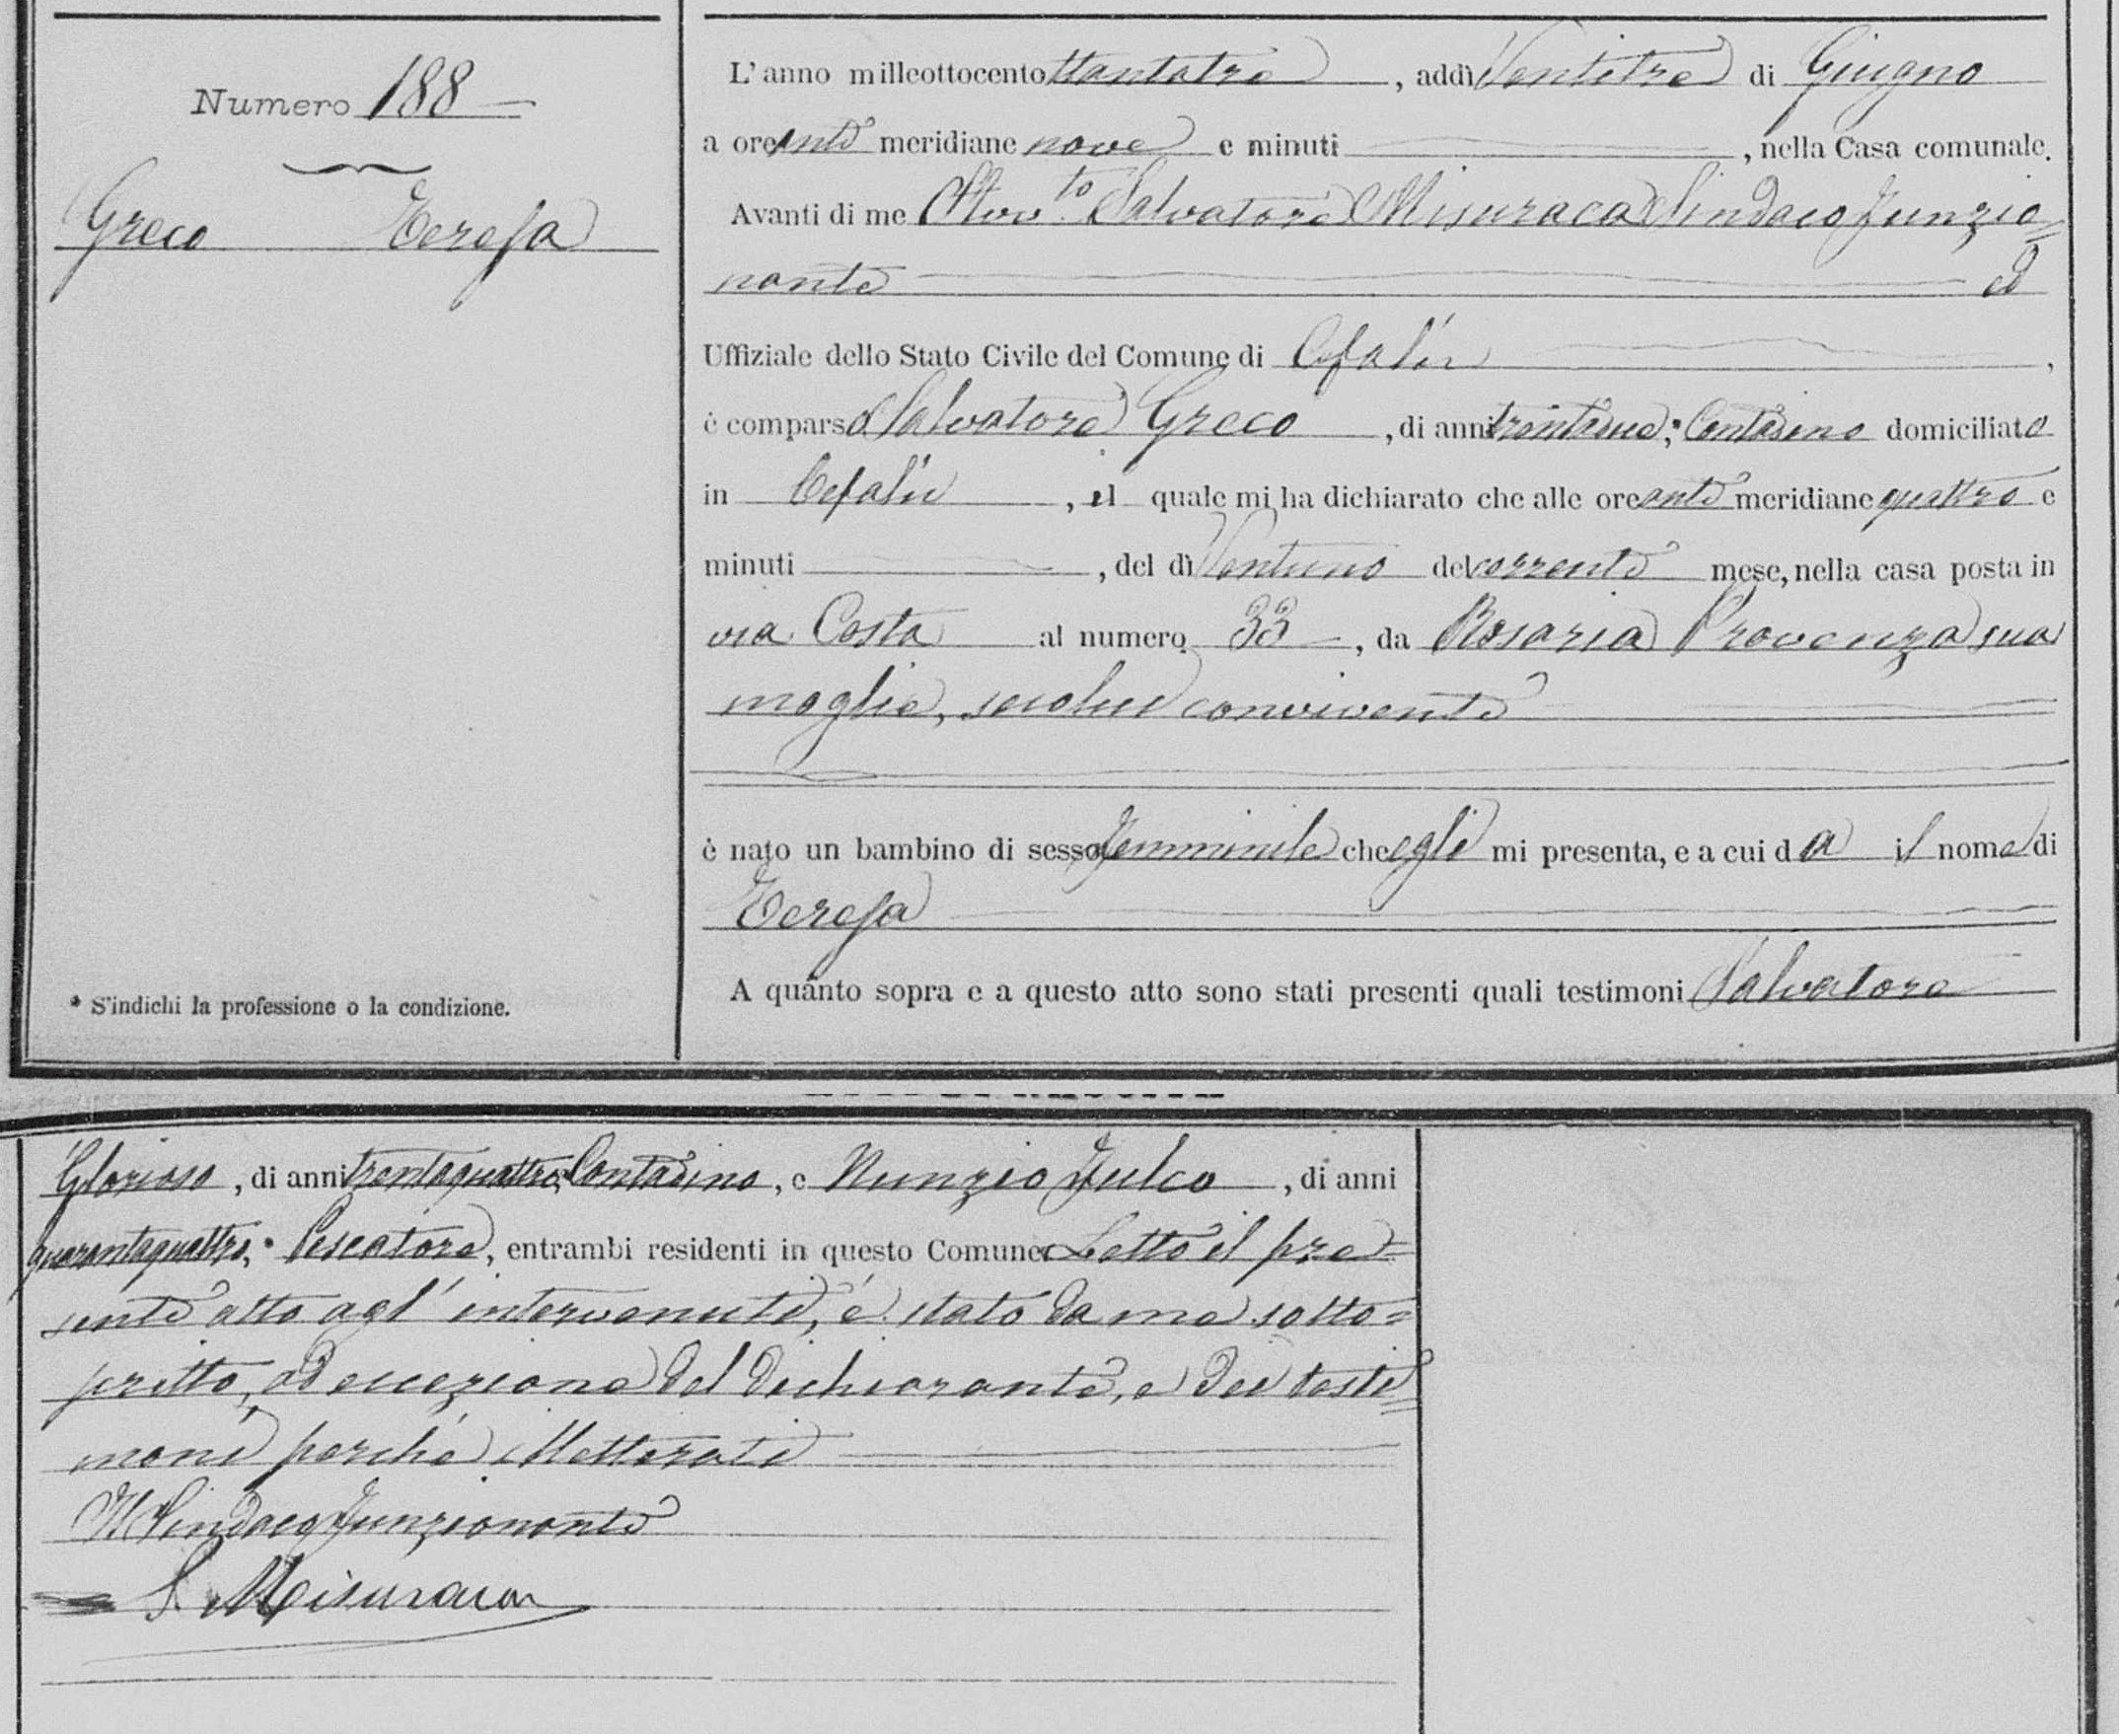 Numero 188
Greco Teresa
* S'indichi la professione o la condizione.
L'anno milleottocentottantatre, addì Ventitre di Giugno
a ore ante meridiane nove e minuti, nella Casa comunale.
Avanti di me Avv.to Salvatore Misuraca Sindaco Funzio=
nante ed
Uffiziale dello Stato Civile del Comune di Cefalù,
è comparso Salvatore Greco, di anni trentadue, * Contadino domiciliato
in Cefalù, il quale mi ha dichiarato che alle ore ante meridiane quattro e
minuti, del dì Ventuno del corrente mese, nella casa posta in
via Costa al numero 33, da Rosaria Provenza sua
moglie, secolui convivente
è nato un bambino di sesso femminile che egli mi presenta, e a cui da il nome di
Teresa
A quanto sopra e a questo atto sono stati presenti quali testimoni Salvatore
Glorioso, di anni trentaquattro, Contadino, e Nunzio Fulco, di anni
quarantaquattro, * Pescatore, entrambi residenti in questo Comune. Letto il pre=
sente atto agl' intervenuti, è stato da me sotto=
scritto, ad eccezione del dichiarante, e dei testi=
moni perché illetterati
Il Sindaco Funzionante
S. Misuraca